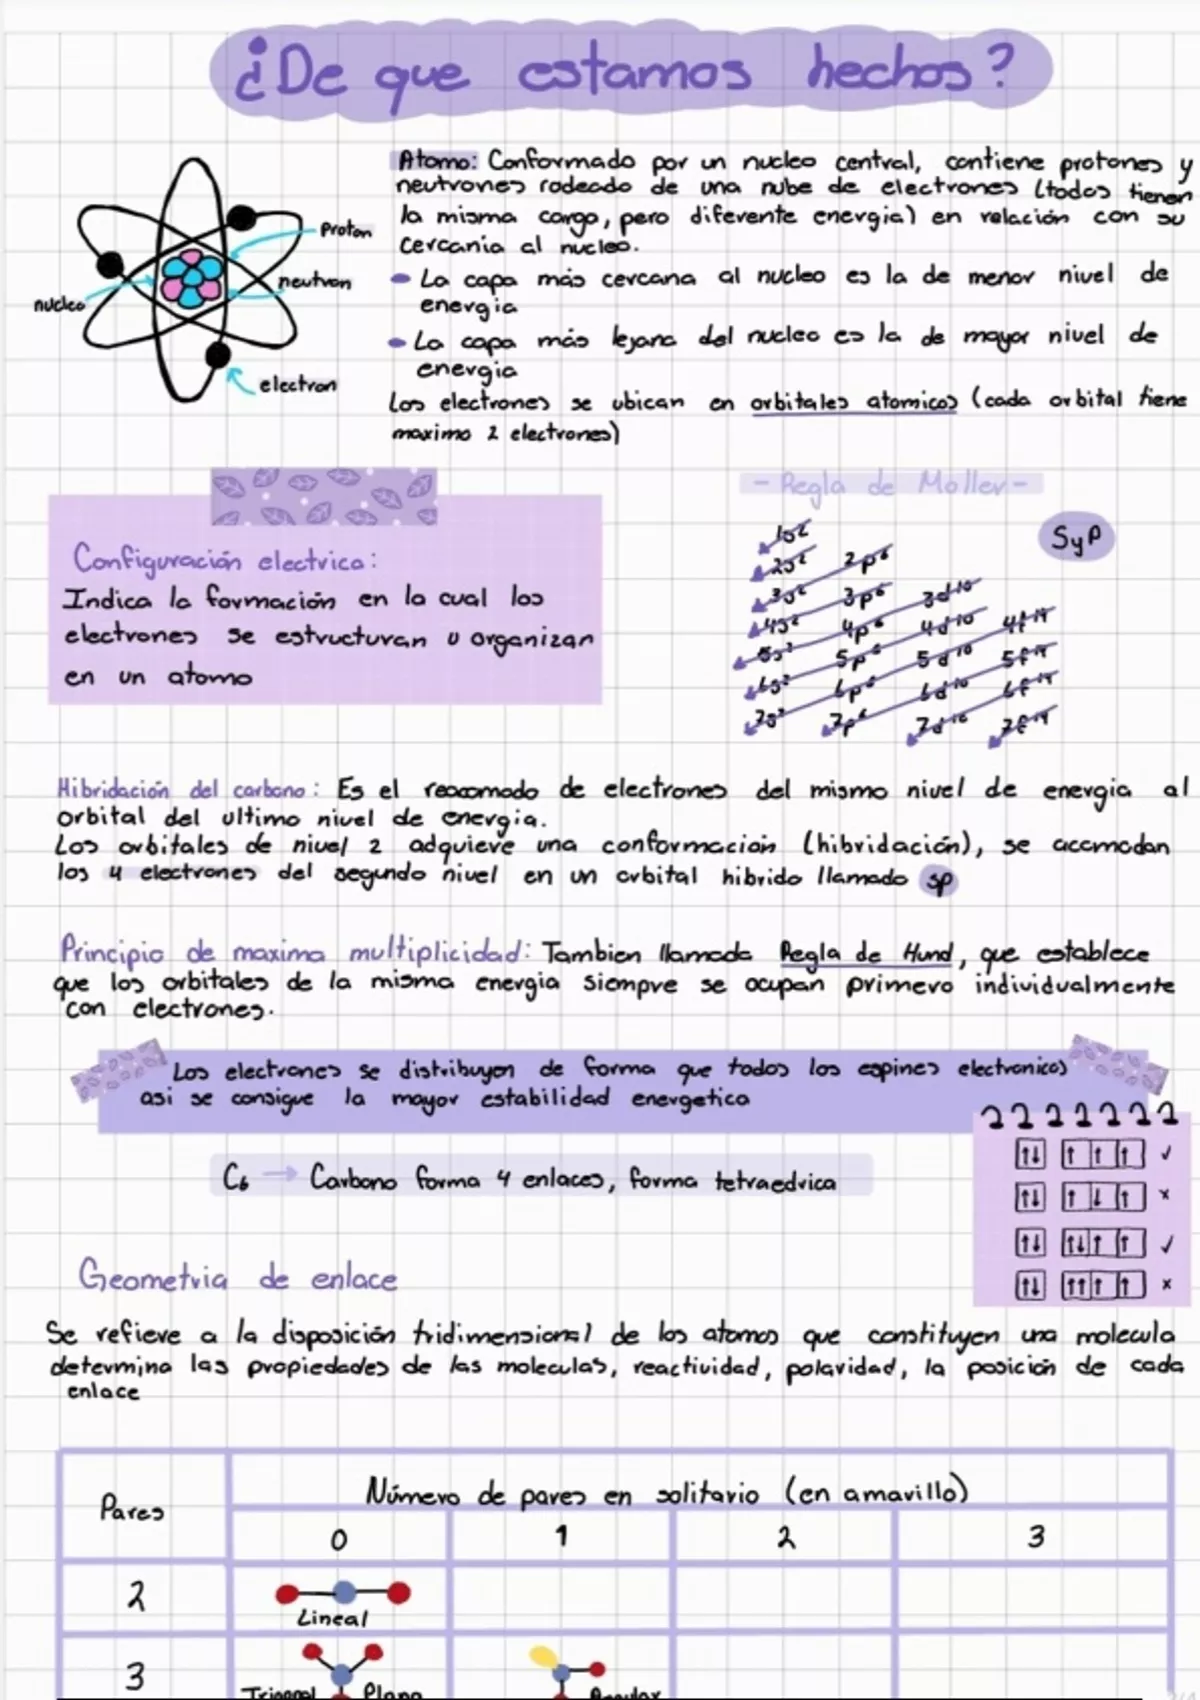 ¿De que estamos hechos?
Atomo: Conformado por un nucleo central, contiene protones y
neutrones rodeado de una nube de electrones (todos tienen
la misma carga, pero diferente energia) en relación con su
cercania al nucleo.
La capa más cercana al nucleo es la de menor nivel de
energia
La capa más lejana del nucleo es la de mayor nivel de
energia
Los electrones se ubican en orbitales atomicos (cada orbital tiene
maximo 2 electrones)
proton
neutron
nucleo
electron
Configuración electrica:
Indica la formación en la cual los
electrones se estructuran u organizan
en un atomo
- Regla de Moller -
SyP
1s²
2s² 2p⁶
3s² 3p⁶ 3d¹⁰
4s² 4p⁶ 4d¹⁰ 4f¹⁴
5s² 5p⁶ 5d¹⁰ 5f¹⁴
6s² 6p⁶ 6d¹⁰ 6f¹⁴
7s² 7p⁶ 7d¹⁰ 7f¹⁴
Hibridación del carbono: Es el reacomodo de electrones del mismo nivel de energia al
orbital del ultimo nivel de energia.
Los orbitales de nivel 2 adquiere una conformación (hibridación), se acomodan
los 4 electrones del segundo nivel en un orbital hibrido llamado sp
Principio de maxima multiplicidad: Tambien llamada Regla de Hund, que establece
que los orbitales de la misma energia siempre se ocupan primero individualmente
con electrones.
Los electrones se distribuyen de forma que todos los espines electronicos
asi se consigue la mayor estabilidad energetica
C₆ → Carbono forma 4 enlaces, forma tetraedrica
↑↓ ↑ ↑ ↑ ✓
↑↓ ↑ ↓ ↑ x
↑↓ ↑↓ ↑ ↑ ✓
↑↓ ↑↑ ↑ ↑ x
Geometria de enlace
Se refiere a la disposición tridimensional de los atomos que constituyen una molecula
determina las propiedades de las moleculas, reactividad, polaridad, la posición de cada
enlace
Pares
Número de pares en solitario (en amarillo)
0 1 2 3
2
Lineal
3
Trigonal Plana
Angular